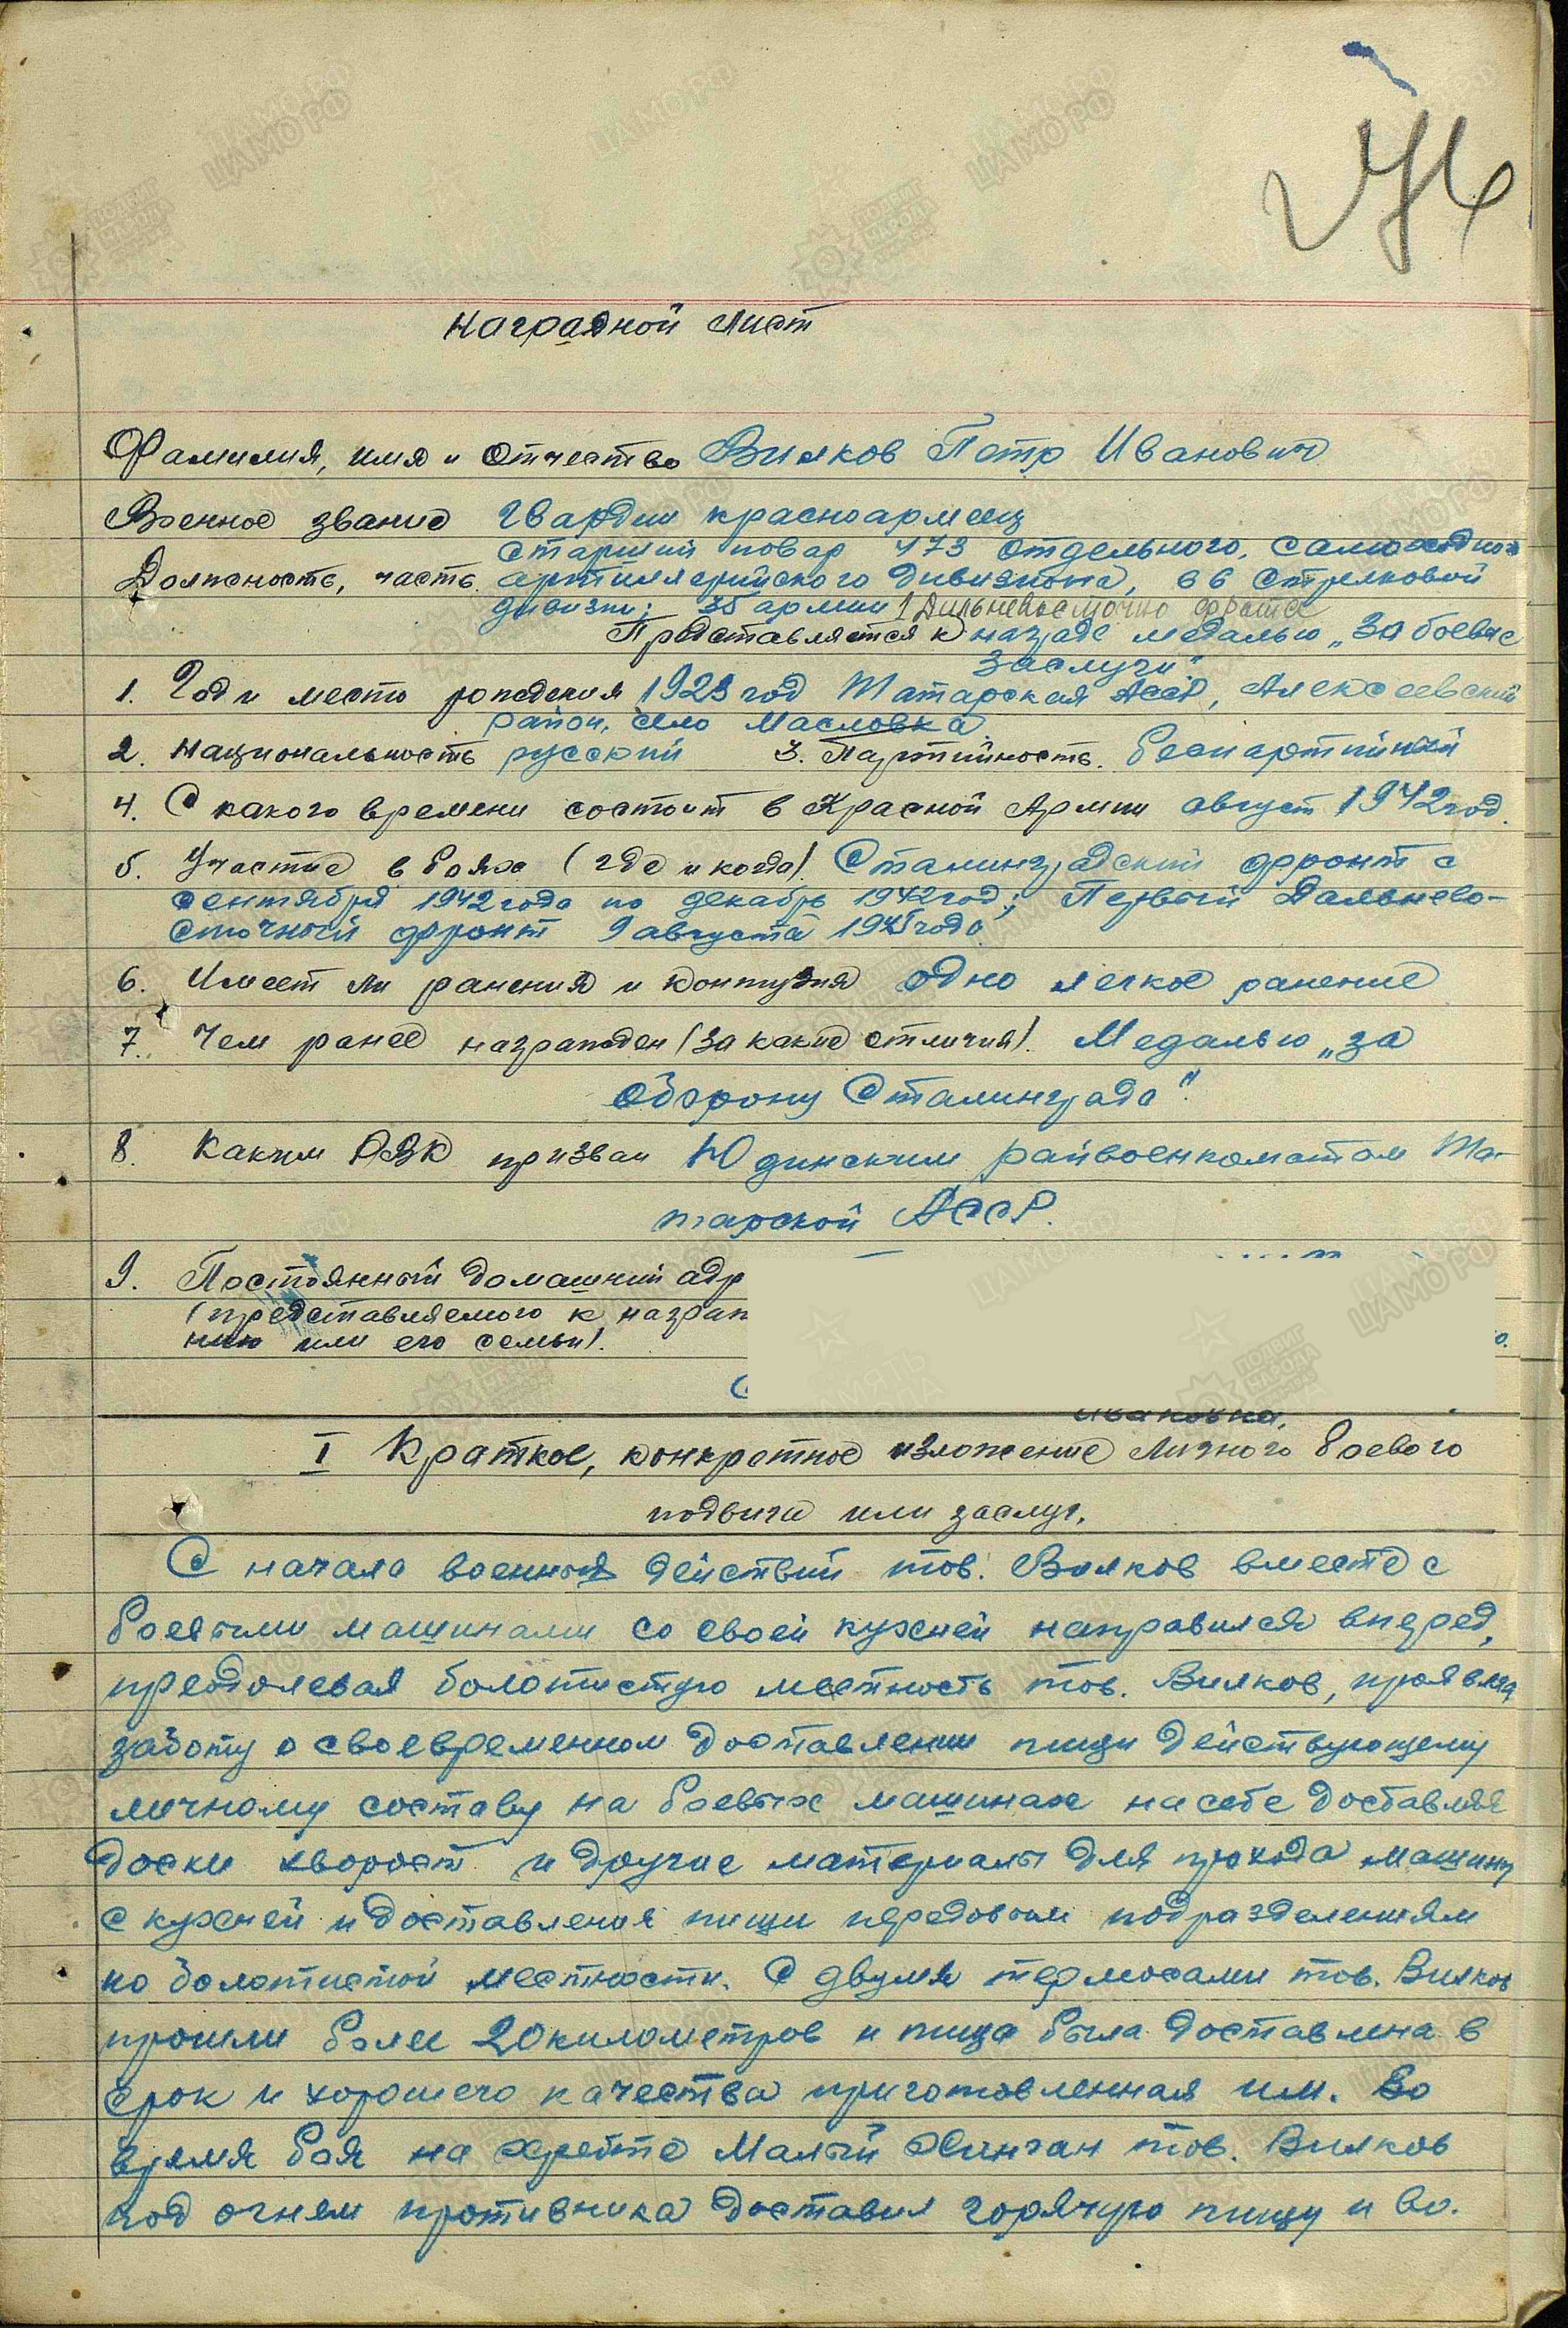 Наградной лист
Фамилия, имя и отчество Вилков Петр Иванович
Военное звание Гвардии красноармеец
старший повар 473 отдельного, самоходного
Должность, часть. артиллерийского дивизиона, 66 стрелковой
дивизии; 35 армии 1 Дальневосточно фронта
Представляется к награде медалью „За боевые
заслуги".
1. Год и место рождения 1923 год Татарская АССР, Алексеевский
район, село Масловка
2. Национальность русский 3. Партийность. беспартийный
4. С какого времени состоит в Красной Армии август 1942 год.
5. Участие в боях (где и когда). Сталинградский фронт с
сентября 1942 года по декабрь 1942 год; Первый Дальнево-
сточный фронт 9 августа 1945 года
6. Имеет ли ранения и контузия одно легкое ранение
7. Чем ранее награжден (за какие отличия). Медалью „за
оборону Сталинграда".
8. Каким РВК призван Юдинским райвоенкоматом Та-
тарской АССР.
9. Постоянный домашний адр
(представляемого к награж
нию или его семьи).
ивановна,
I Краткое, конкретное изложение личного боевого
подвига или заслуг.
С начала военных действий тов. Вилков вместе с
боевыми машинами со своей кухней направился вперед,
преодолевая болотистую местность тов. Вилков, проявляя
заботу о своевременном доставлении пищи действующему
личному составу на боевых машинах на себе доставлял
доски хворост и другие материалы для прохода машины
с кухней и доставления пищи передовым подразделениям
по болотистой местности. С двумя термосами тов. Вилков
прошли более 20 километров и пища была доставлена в
срок и хорошего качества приготовленная им. Во
время боя на хребте Малый Хинган тов. Вилков
под огнем противника доставил горячую пищу и во.